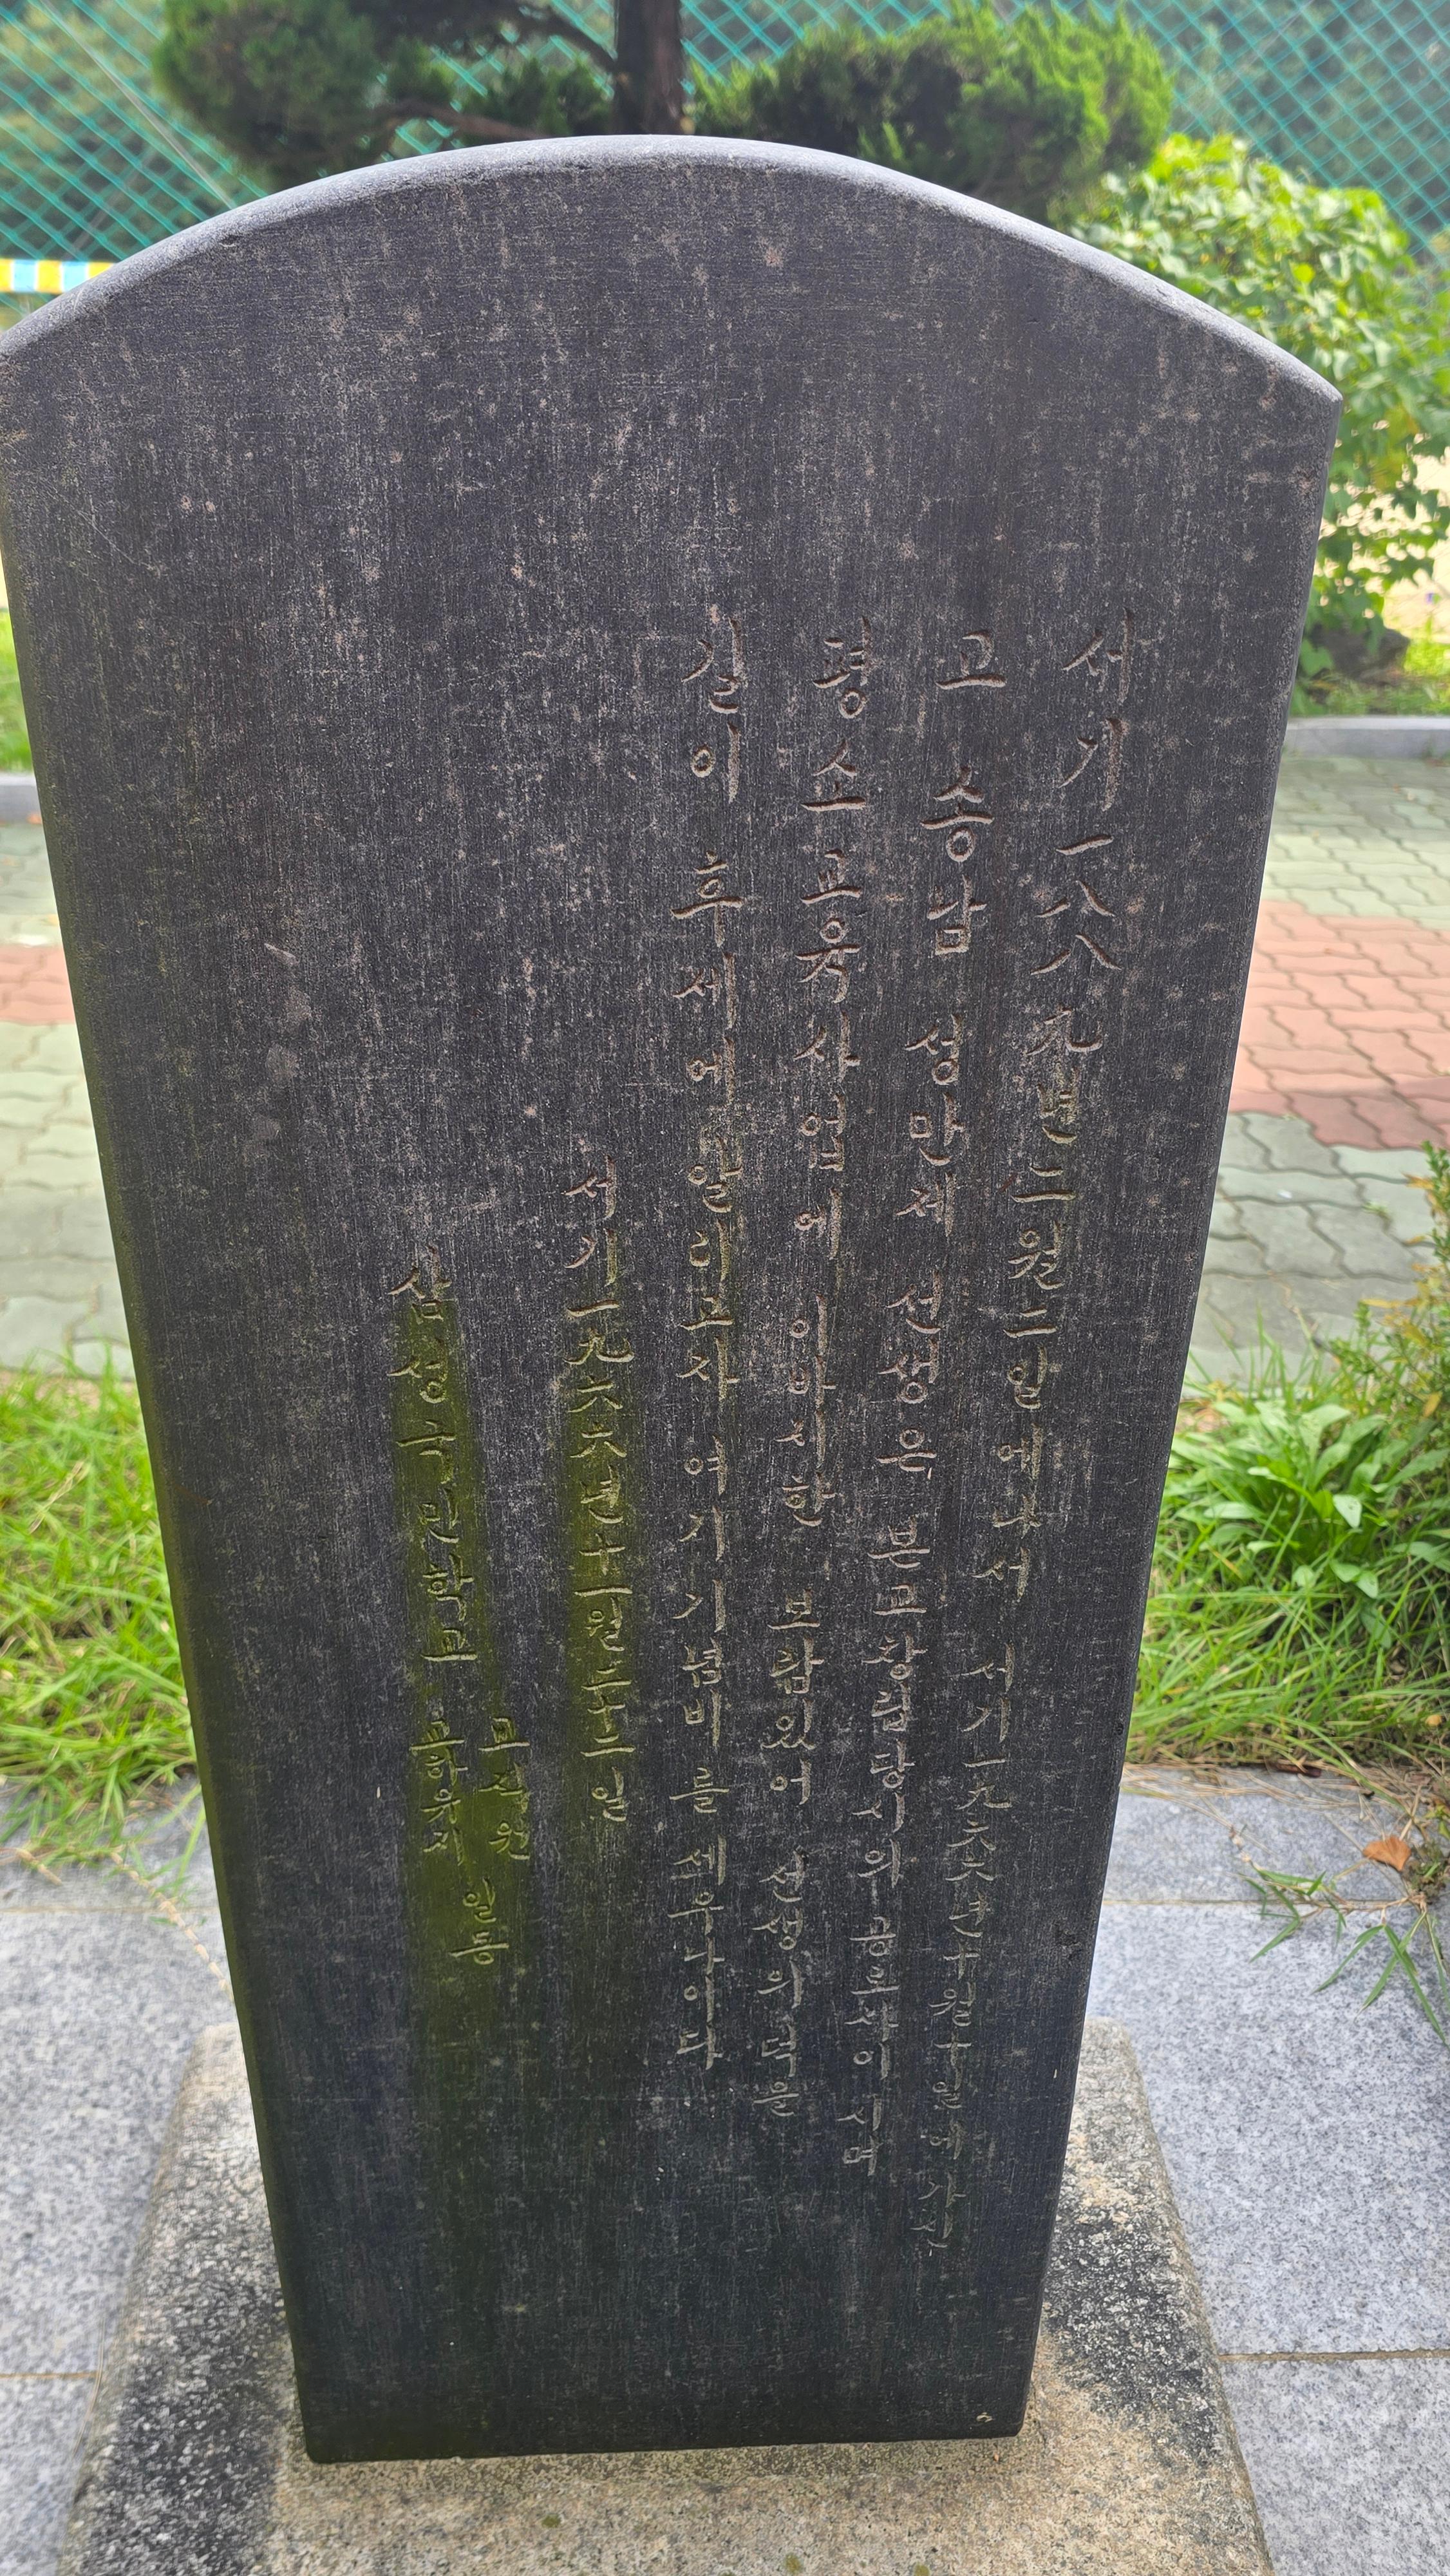 서기 一八八九년 二월 二일에 나서 서기 一九六六년 十월 十일에 가신
고 송남 성만제 선생은 본교 창립 당시의 공로자이시며
평소 교육사업에 이바지한 보람있어 선생의 덕을
길이 후세에 알리고자 여기 기념비를 세우나이다
서기 一九六六년 十一월 二十二일
삼성국민학교 교직원 교하유지 일동